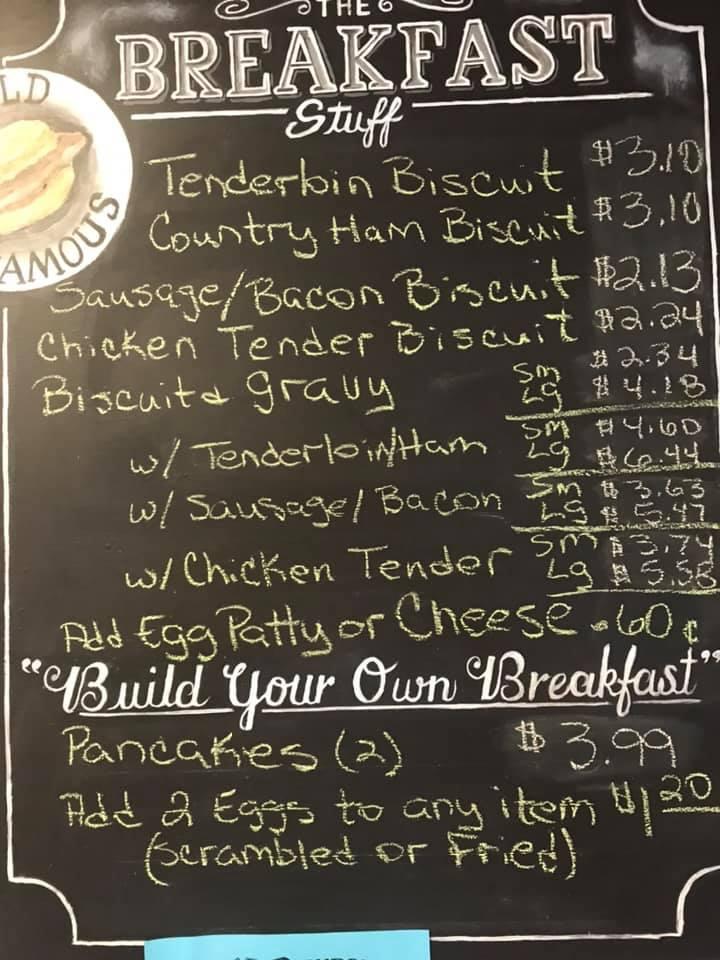 THE
BREAKFAST
Stuff
LD
AMOUS
Tenderloin Biscuit $3.10
Country Ham Biscuit $3.10
Sausage/Bacon Biscuit $2.13
Chicken Tender Biscuit $2.24
Biscuit & gravy Sm $2.34
Lg $4.18
w/ Tenderloin/Ham Sm $4.60
Lg $6.44
w/ Sausage/Bacon Sm $3.63
Lg $5.47
w/ Chicken Tender Sm $3.74
Lg $5.58
Add Egg Patty or Cheese .60¢
"Build Your Own Breakfast"
Pancakes (2) $3.99
Add 2 Eggs to any item $1.20
(Scrambled or Fried)